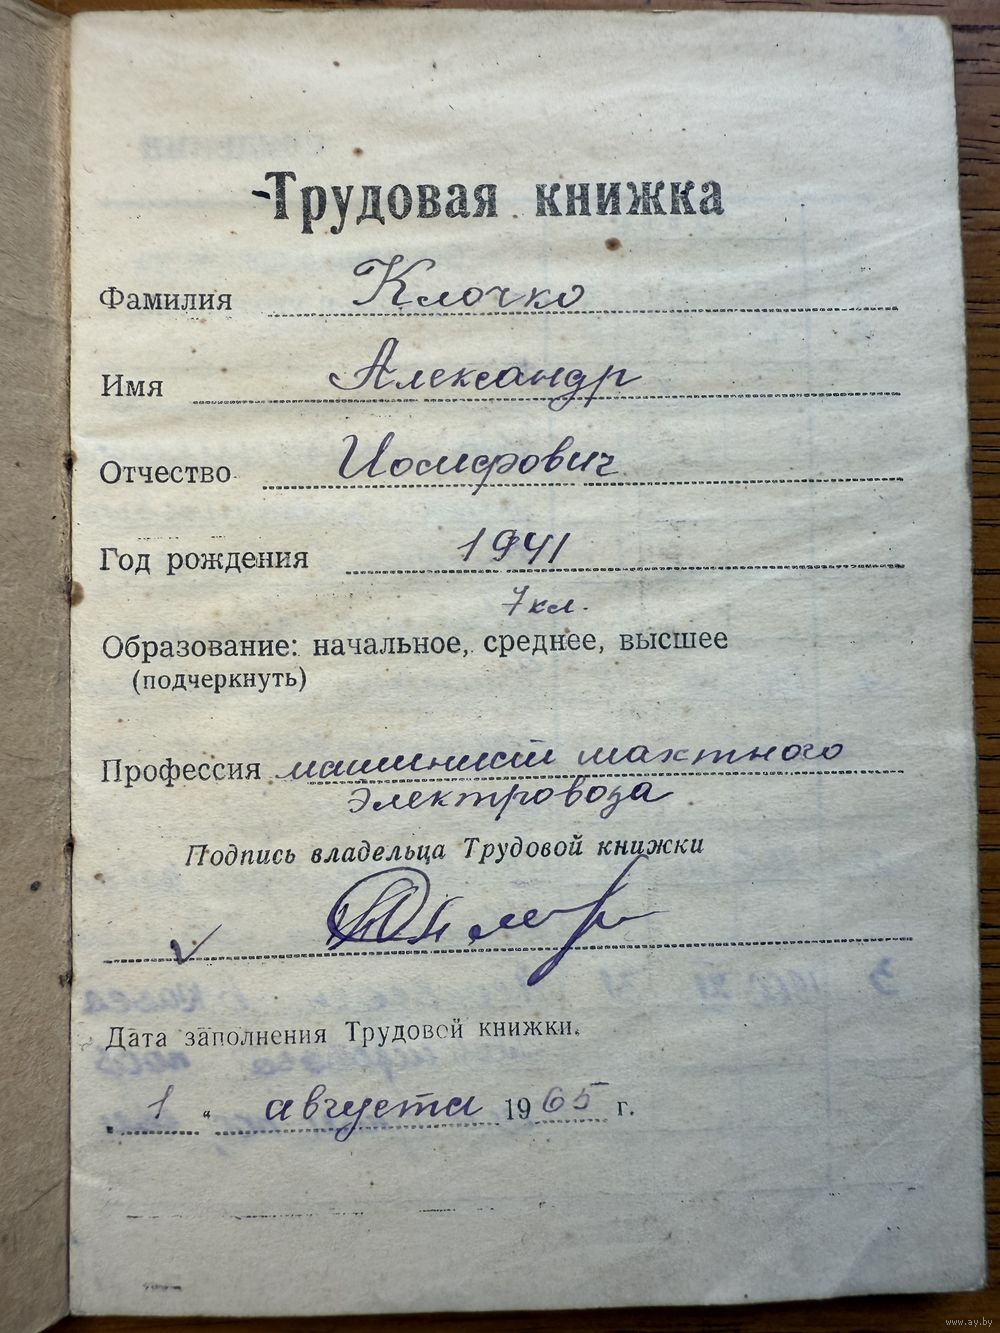 Трудовая книжка
Фамилия Клочко
Имя Александр
Отчество Иосифович
Год рождения 1941
7 кл.
Образование: начальное, среднее, высшее
(подчеркнуть)
Профессия машинист шахтного
электровоза
Подпись владельца Трудовой книжки
Дата заполнения Трудовой книжки.
„ 1 “ августа 1965 г.
www.ay.by